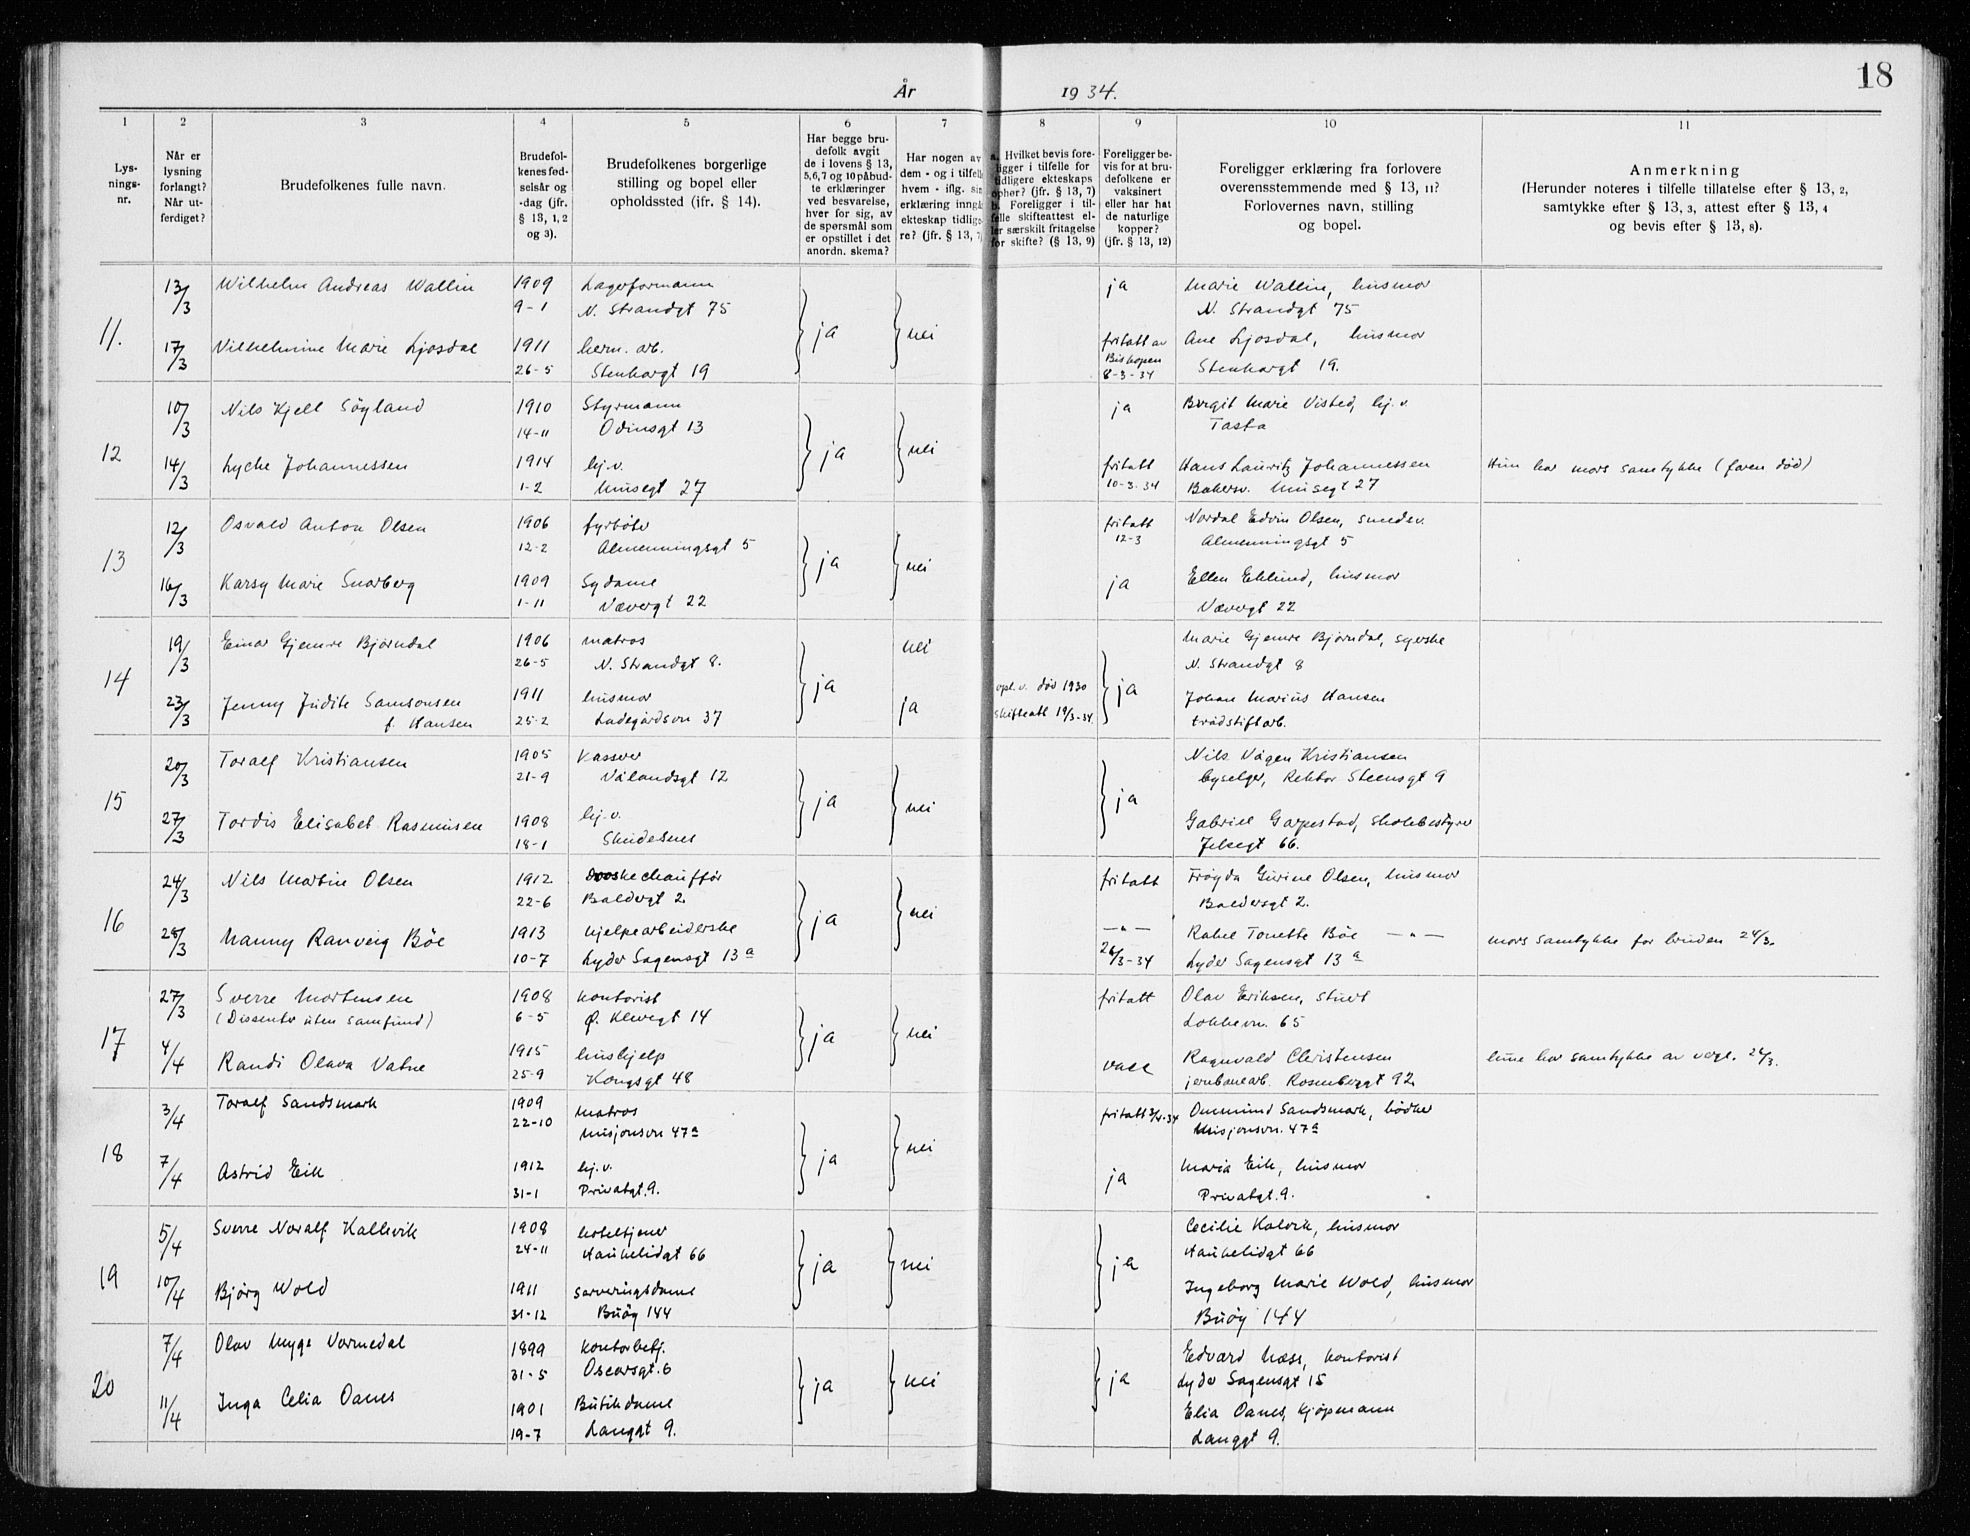 18
År 1934.
1 2 3 4 5 6 7 8 9 10 11
Lys-
nings-
nr.
Når er
lysning
forlangt?
Når ut-
ferdiget?
Brudefolkenes fulle navn.
Brudefol-
kenes fød-
selsår og
-dag (jfr.
§ 13, 1, 2
og 3).
Brudefolkenes borgerlige
stilling og bopel eller
opholdssted (ifr. § 14).
Har begge bru-
defolk avgit
de i lovens § 13,
5,6,7 og 10 påbud-
te erklæringer
ved besvarelse,
hver for sig, av
de spørsmål som
er opstillet i det
anordn. skema?
Har nogen av
dem - og i tilfelle
hvem - iflg. sin
erklæring inngå
ekteskap tidlige-
re? (jfr. § 13, 7)
a. Hvilket bevis fore-
ligger i tilfelle for
tidligere ekteskaps
opher? (jfr. § 13, 7)
b. Foreligger i til-
felle skifteattest el-
ler særskilt fritagelse
for skifte? (§ 13, 9)
Foreligger be-
vis for at bru-
defolkene er
vaksinert
eller har hat
de naturlige
kopper?
(jfr. § 13, 12)
Foreligger erklæring fra forlovere
overensstemmende med § 13, 11?
Forlovernes navn, stilling
og bopel.
Anmerkning
(Herunder noteres i tilfelle tillatelse efter § 13, 2,
samtykke efter § 13, 3, attest efter § 13, 4
og bevis efter § 13, 8).
11. 13/3 Wilhelm Andreas Wallin 1909 Lagerformann ja nei ja Marie Wallin, husmor
9-1 N. Strandgt 75 N. Strandgt 75
17/3 Vilhelmine Marie Ljosdal 1911 herm. arb. fritatt av Ane Ljosdal, husmor
26-5 Stenhargt 19 Biskopen 8-3-34 Stenhargt 19.
12 10/3 Nils Kjell Søyland 1910 Styrmann ja nei ja Bergit Marie Visted, hj. v.
14-11 Odinsgt 13 Tasta
14/3 Lyche Johannessen 1914 hj. v. fritatt Hans Lauritz Johannessen Hun har mors samtykke (faren død)
1-2 Musegt 27 10-3-34 Bakersv. Musegt 27
13 12/3 Osvald Anton Olsen 1906 fyrbøter ja nei fritatt Nordal Edvin Olsen, smedsv.
12-2 Almenningsgt 5 12-3 Almenningsgt 5
16/3 Karsy Marie Snarberg 1909 Sydame ja Ellen Eklund, husmor
1-11 Vævergt 22 Vævergt 22
14 19/3 Einar Gjemre Bjørndal 1906 matros ja nei ja Marie Gjemre Bjørndal, syerske
26-5 N. Strandgt 8. N. Strandgt 8
23/3 Jenny Judite Samsonsen 1911 husmor ja opl. v. død 1930 Johan Marius Hansen
f. Hansen 25-2 Ladegårdsvn 37 skifteatt 19/3-34. trådstiftarb.
15 20/3 Toralf Kristiansen 1905 Kasserer ja nei ja Nils Vågen Kristiansen
21-9 Vålandsgt 12 byselger, Rektor Steensgt 9
27/3 Tordis Elisabet Rasmussen 1908 hj. v. Gabriel Garpestad, skolebestyrer
18-1 Skudesnes Jelsegt 66.
16 24/3 Nils Martin Olsen 1912 Droskechauffør ja nei fritatt Frøyda Gurine Olsen, husmor
22-6 Baldersgt 2. Baldersgt 2.
28/3 Nanny Ranveig Bøe 1913 hjelpearbeiderske —"— Rakel Tonette Bøe —"— mors samtykke for bruden 24/3.
10-7 Lyder Sagensgt 13a 26/3-34 Lyder Sagensgt 13a
17 27/3 Sverre Mortensen 1908 kontorist ja nei fritatt Olav Eriksen, stuert
(Dissenter uten samfund) 6-5 Ø. Klevegt 14 Lokkevn. 65
4/4 Randi Olava Vatne 1915 hushjelp vacc Ragnvald Christensen hun har samtykke av verge. 26/3.
25-9 Kongsgt 48 jernbanearb. Rosenberggt 92
18 3/4 Toralf Sandsmark 1909 matros ja nei fritatt 3/4-34 Ommund Sandsmark, bødker
22-10 Misjonsvn 47a Misjonsvn. 47a
7/4 Astrid Eik 1912 hj. v. ja Maria Eik, husmor
31-1 Privatgt. 9. Privatgt. 9.
19 5/4 Sverre Noralf Kallevik 1908 hoteltjener ja nei ja Cecilie Kalvik, husmor
24-11 Haukelidgt 66 Haukelidgt 66
10/4 Bjørg Wold 1911 serveringsdame Ingeborg Marie Wold, husmor
31-12 Buøy 144 Buøy 144
20 7/4 Olav Myge Varmedal 1899 kontorbetj. ja nei ja Edvard Næss, kontorist
31-5 Oscarsgt. 6 Lyder Sagensgt 15
11/4 Inga Celia Oanes 1901 Butikdame Elia Oanes, kjøpmann
19-7 Langgt 9. Langgt 9.